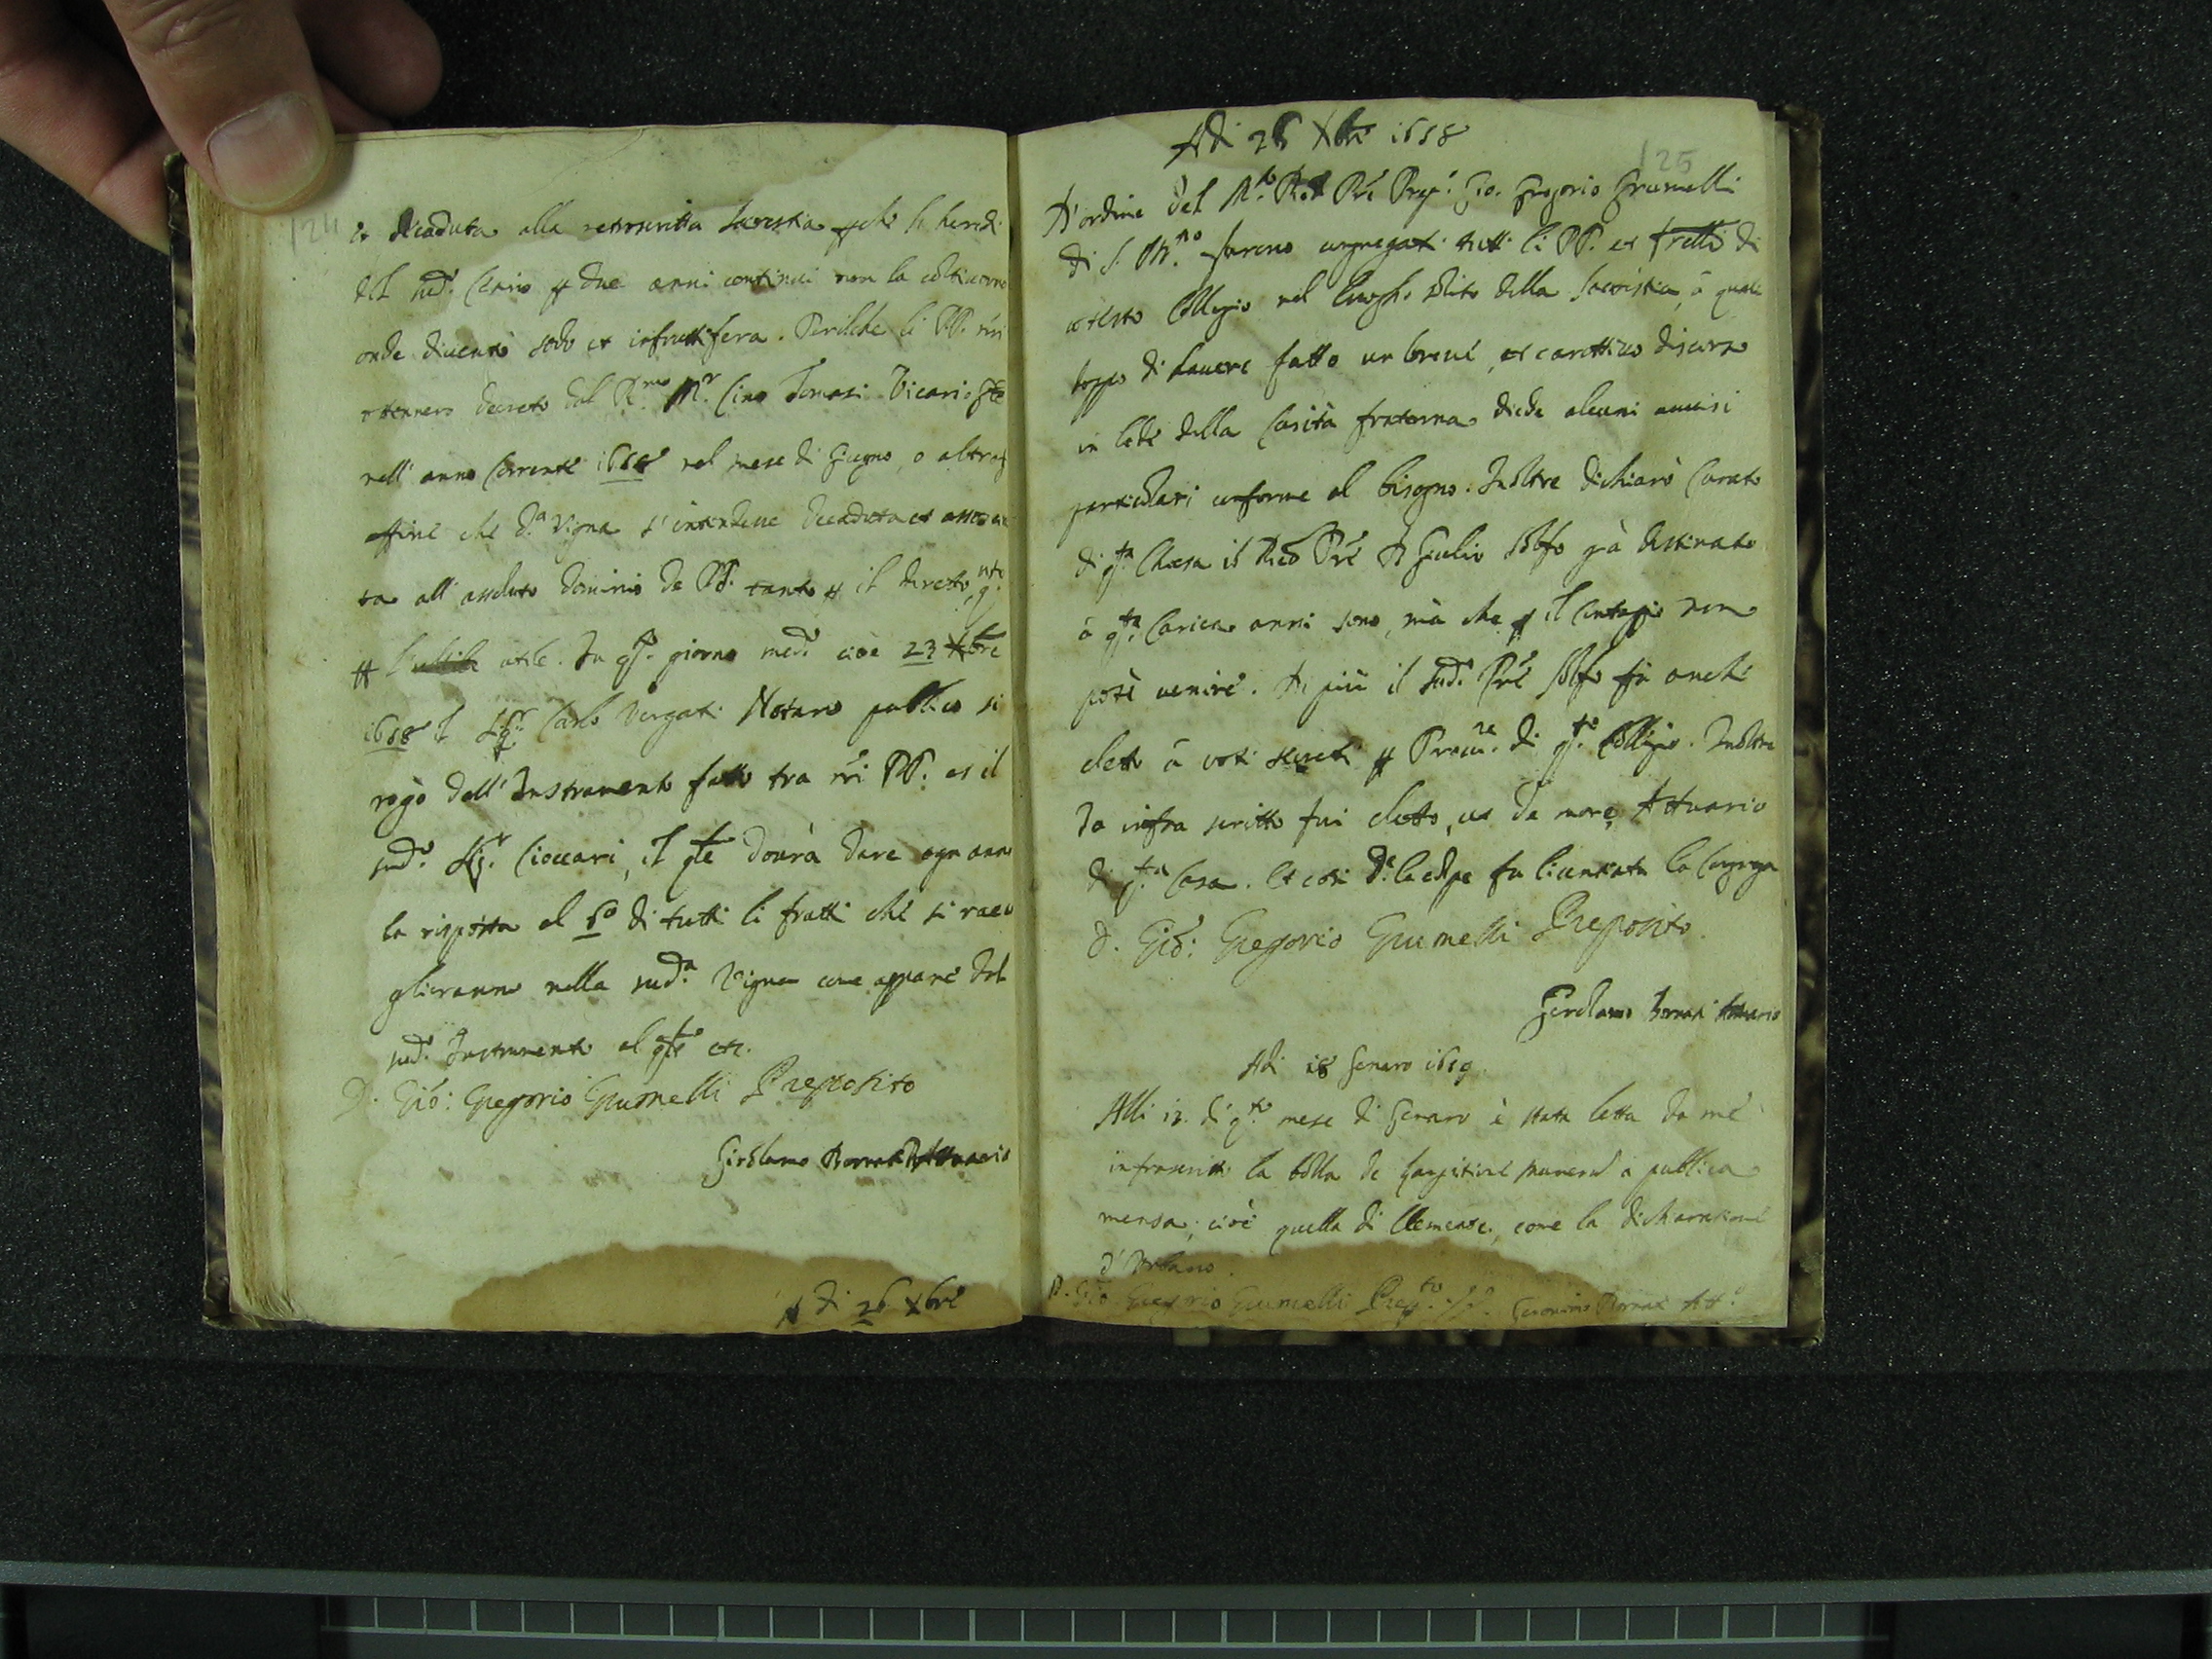 124
et decaduta alla retroscritta Sacrestia pche li heredi
del sud.º Cerrio p due anni continui non la coltivorno
onde diventò sodo et infruttifera. Perilche li PP. nri
ottennero decreto dal R.mo M.r Cino Tomasi Vicario Gle
nell' anno Corrente 1658 nel mese di Giugno, o altro
affine che d.ª Vigna s'intendesse decaduta et
ta all' assoluto dominio de PP. tanto p il diretto, qnto
p l' utile. In qsto giorno med.º cioè 23 Xbre
1658 Il Sig.r Carlo Vergati Notaro publico si
rogò dell' Instramento fatto tra nri PP. et il
sud.º Sig.r Cioccari, il qle dourà dare ogn anno
la risposta al 6º di tutti li frutti che si racco
glieranno nella sud.ª Vigna come appare dal
sud.º Instrumento al qle etc.
D. Gio: Gregorio Grumelli Preposito
Girolamo Attuario
A di 26 Xbre
125
Adi 26 Xbre 1658
D'ordine del M.to Rdo Pre Prep.to Gio. Gregorio Grumelli
di S. M. furono congregati tutti li PP. et frelli di
cotesto Collegio nel luogho solito della Sacristia, à quali
doppo di havere fatto un breve, et carottiuo discorso
in lode della Carità fraterna diede alcuni auuisi
particolari conforme al bisogno. Inoltre dichiarò Curato
di q.ta Chiesa il Rdo Pre D Giulio Solfo già destinato
à q.ta Carica anni sono, mà che p il Contagio non
potè uenire. Di più il sud.º Pre Solfo fù anche
eletto à voti secreti p Procu.re di q.to Collegio. Inoltre
Io infra scritto fui eletto, ut de more, Attuario
di q.ta Casa. Et cosi d.e le colpe fu licentiata la Congreg.n
D. Gio: Gregorio Grumelli Preposito.
Girolamo Attuario
Adi 18 Genaro 1659
Alli 12. di q.to mese di Genaro è stata letta da me
infrascritto la bolla de largitione munerũ a publica
mensa, cioè quella di Clemente, come la dichiaratione
d'Urbano.
D. Gio: Gregorio Grumelli Prep.to Geronimo Att.º